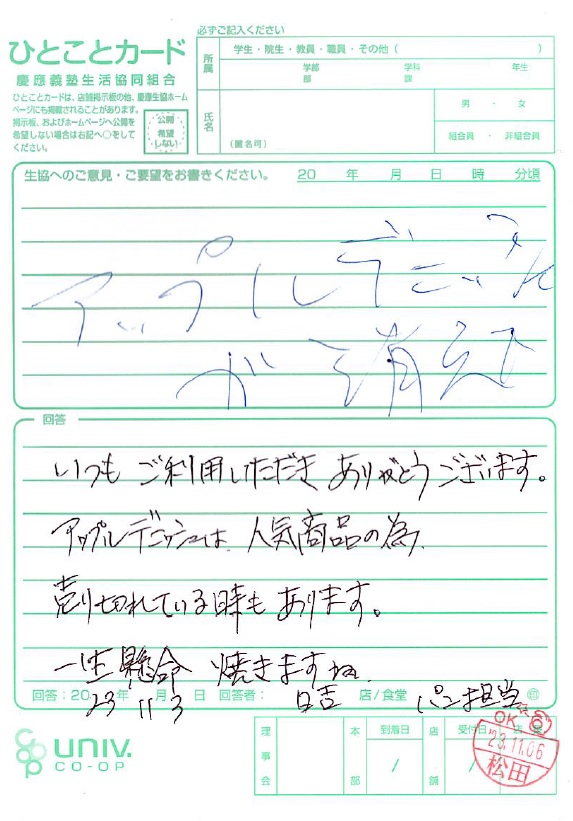 必ずご記入ください
ひとことカード
慶應義塾生活協同組合
ひとことカードは、店舗掲示板の他、慶應生協ホーム
ページにも掲載されることがあります。
掲示板、およびホームページへ公開を
希望しない場合は右記へ○をして
ください。
公開
希望
しない
所属
学生・院生・教員・職員・その他（　　　　　）
学部　学科　年生
部　課
氏名
（匿名可）
男・女
組合員・非組合員
生協へのご意見・ご要望をお書きください。 20　年　月　日　時　分頃
アップルデニッシュ
が消えて
回答
いつもご利用いただきありがとうございます。
アップルデニッシュは、人気商品の為、
売り切れている時もあります。
一生懸命 焼きますね
回答：2023年11月3日 回答者： 日吉 店/食堂 パン担当 ㊞
UNIV.
CO-OP
理事会
本部
到着日
/
店舗
受付日
/
OK
'23.11.06
松田